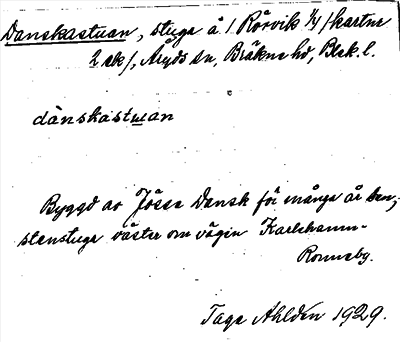 Danskastuan, stuga å 1 Rörvik 1/4 /kartne
2 sk/, Åryds sn, Bräkne hd, Blek. l.
dånskastuan
Byggd av Jösse Dansk för många år sen,
stenstuga väster om vägen Karlshamn-
Ronneby.
Tage Ahldén 1929.